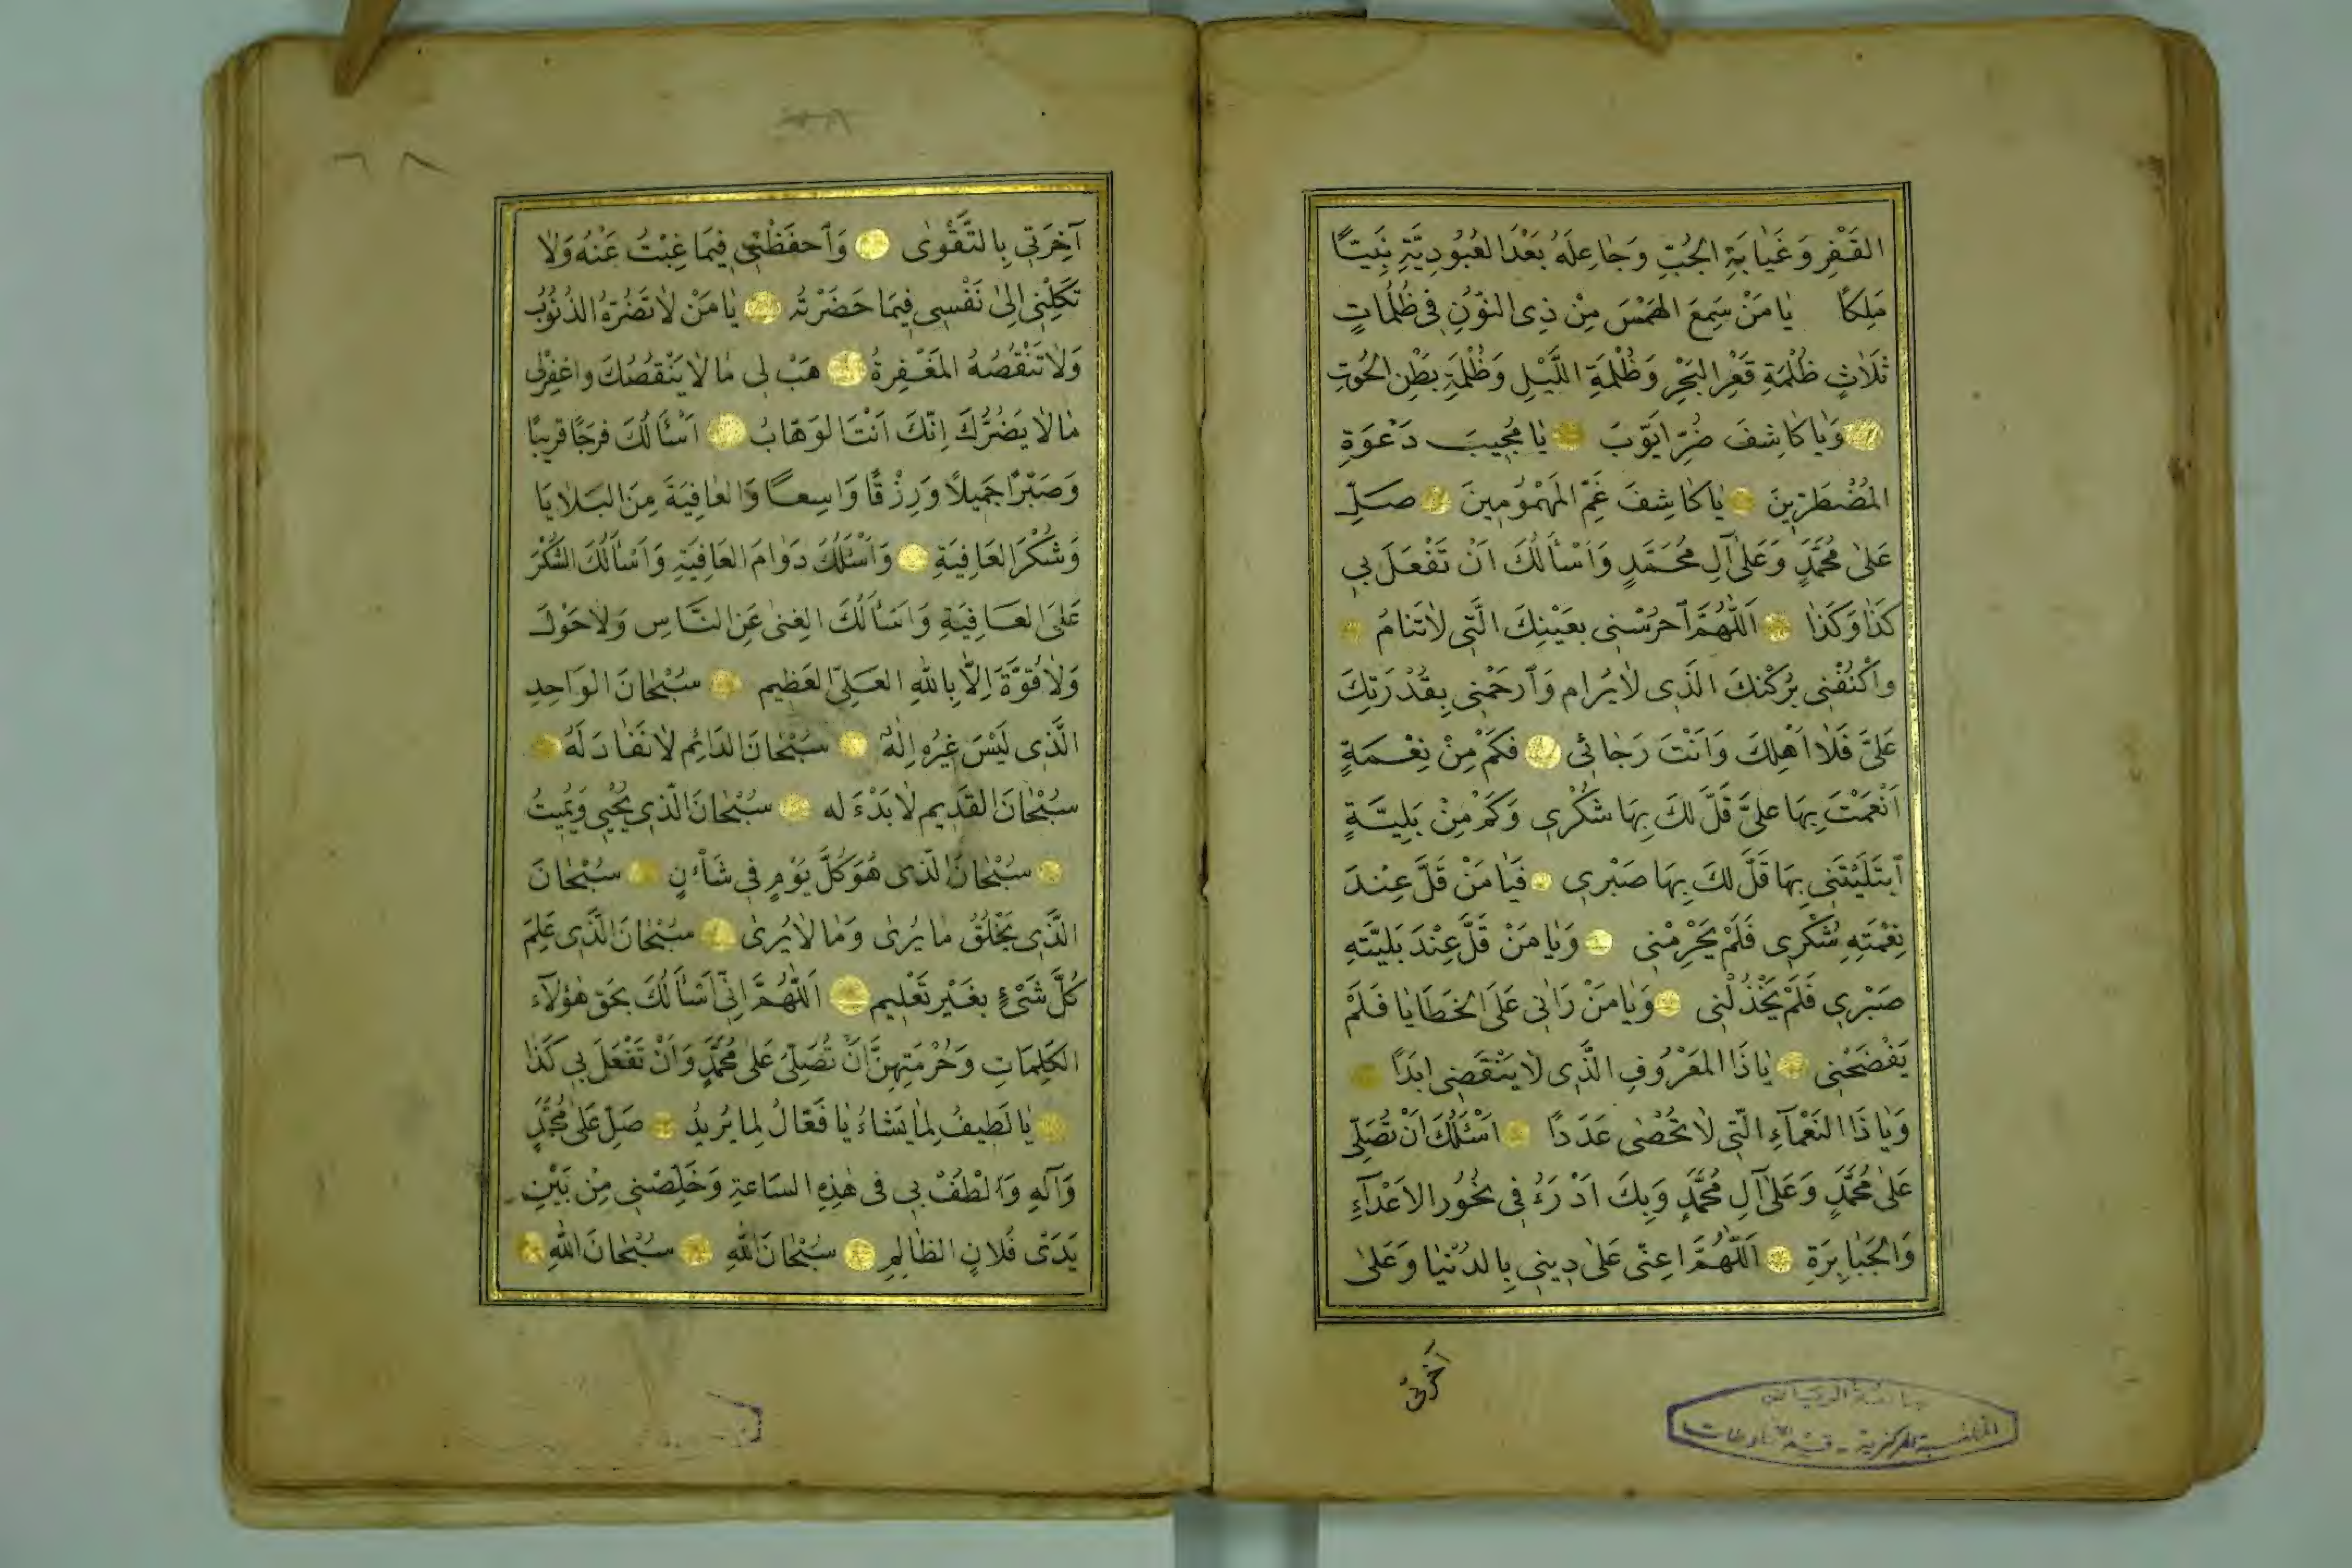 القَفْرِ وَغَيَابَةِ الجُبِّ وَجَاعِلَهُ بَعْدَ العُبُودِيَّةِ نَبِيًّا
مَلِكًا يَا مَنْ سَمِعَ الهَمْسَ مِنْ ذِي النُّوْنِ فِي ظُلُمَاتٍ
ثَلَاثٍ ظُلْمَةِ قَعْرِ البَحْرِ وَظُلْمَةِ اللَّيْلِ وَظُلْمَةِ بَطْنِ الحُوْتِ
وَيَا كَاشِفَ ضُرِّ اَيُّوْبَ يَا مُجِيبَ دَعْوَةِ
المُضْطَرِّيْنَ يَا كَاشِفَ غَمِّ المَهْمُوْمِينَ صَلِّ
عَلَى مُحَمَّدٍ وَعَلَى آلِ مُحَمَّدٍ وَاَسْأَلُكَ اَنْ تَفْعَلَ بِي
كَذَا وَكَذَا اَللّٰهُمَّ احْرُسْنِي بِعَيْنِكَ الَّتِي لَا تَنَامُ
وَاكْنُفْنِي بِرُكْنِكَ الَّذِي لَا يُرَام وَارْحَمْنِي بِقُدْرَتِكَ
عَلَيَّ فَلَا اَهْلِكَ وَاَنْتَ رَجَائِي فَكَمْ مِنْ نِعْمَةٍ
اَنْعَمْتَ بِهَا عَلَيَّ قَلَّ لَكَ بِهَا شُكْرِي وَكَمْ مِنْ بَلِيَّةٍ
ابْتَلَيْتَنِي بِهَا قَلَّ لَكَ بِهَا صَبْرِي فَيَا مَنْ قَلَّ عِنْدَ
نِعْمَتِهِ شُكْرِي فَلَمْ يَحْرِمْنِي وَيَا مَنْ قَلَّ عِنْدَ بَلِيَّتِهِ
صَبْرِي فَلَمْ يَخْذُلْنِي وَيَا مَنْ رَاَنِي عَلَى الخَطَايَا فَلَمْ
يَفْضَحْنِي يَا ذَا المَعْرُوْفِ الَّذِي لَا يَنْقَضِي اَبَدًا
وَيَا ذَا النَّعْمَآءِ الَّتِي لَا تُحْصَى عَدَدًا اَسْئَلُكَ اَنْ تُصَلِّيَ
عَلَى مُحَمَّدٍ وَعَلَى آلِ مُحَمَّدٍ وَبِكَ اَدْرَءُ فِي نُحُوْرِ الاَعْدَآءِ
وَالجَبَابِرَةِ اَللّٰهُمَّ اَعِنِّي عَلَى دِيْنِي بِالدُّنْيَا وَعَلَى
آخرتي
المكتبة المركزية - قسم المخطوطات
٦٨
آخِرَتِي بِالتَّقْوَى وَاحْفَظْنِي فِيمَا غِبْتُ عَنْهُ وَلَا
تَكِلْنِي اِلَى نَفْسِي فِيمَا حَضَرْتُهُ يَا مَنْ لَا تَضُرُّهُ الذُّنُوْبُ
وَلَا تَنْقُصُهُ المَغْفِرَةُ هَبْ لِي مَا لَا يَنْقُصُكَ وَاغْفِرْ لِي
مَا لَا يَضُرُّكَ اِنَّكَ اَنْتَ الوَهَّابُ اَسْأَلُكَ فَرَجًا قَرِيبًا
وَصَبْرًا جَمِيلًا وَرِزْقًا وَاسِعًا وَالعَافِيَةَ مِنَ البَلَايَا
وَشُكْرَ العَافِيَةِ وَاَسْئَلُكَ دَوَامَ العَافِيَةِ وَاَسْأَلُكَ الشُّكْرَ
عَلَى العَافِيَةِ وَاَسْأَلُكَ الغِنَى عَنِ النَّاسِ وَلَا حَوْلَ
وَلَا قُوَّةَ اِلَّا بِاللّٰهِ العَلِيِّ العَظِيم سُبْحَانَ الوَاحِدِ
الَّذِي لَيْسَ غَيْرُهُ اِلٰهٌ سُبْحَانَ الدَائِمِ لَا نَفَادَ لَهُ
سُبْحَانَ القَدِيم لَا بَدْءَ له سُبْحَانَ الَّذِي يُحْيِي وَيُمِيتُ
سُبْحَانَ الَّذِي هُوَ كُلَّ يَوْمٍ فِي شَأْنٍ سُبْحَانَ
الَّذِي يَخْلُقُ مَا يُرَى وَمَا لَا يُرَى سُبْحَانَ الَّذِي عَلِمَ
كُلَّ شَيْءٍ بِغَيْرِ تَعْلِيم اَللّٰهُمَّ اِنِّي اَسْأَلُكَ بِحَقِّ هٰؤُلَآءِ
الكَلِمَاتِ وَحُرْمَتِهِنَّ اَنْ تُصَلِّيَ عَلَى مُحَمَّدٍ وَاَنْ تَفْعَلَ بِي كَذَا
يَا لَطِيفُ لِمَا يَشَاءُ يَا فَعَّالُ لِمَا يُرِيدُ صَلِّ عَلَى مُحَمَّدٍ
وَآلِهِ وَالْطُفْ بِي فِي هٰذِهِ السَّاعَةِ وَخَلِّصْنِي مِنْ بَيْنِ
يَدَيْ فُلَانٍ الظَّالِمِ سُبْحَانَ اللّٰهِ سُبْحَانَ اللّٰهِ